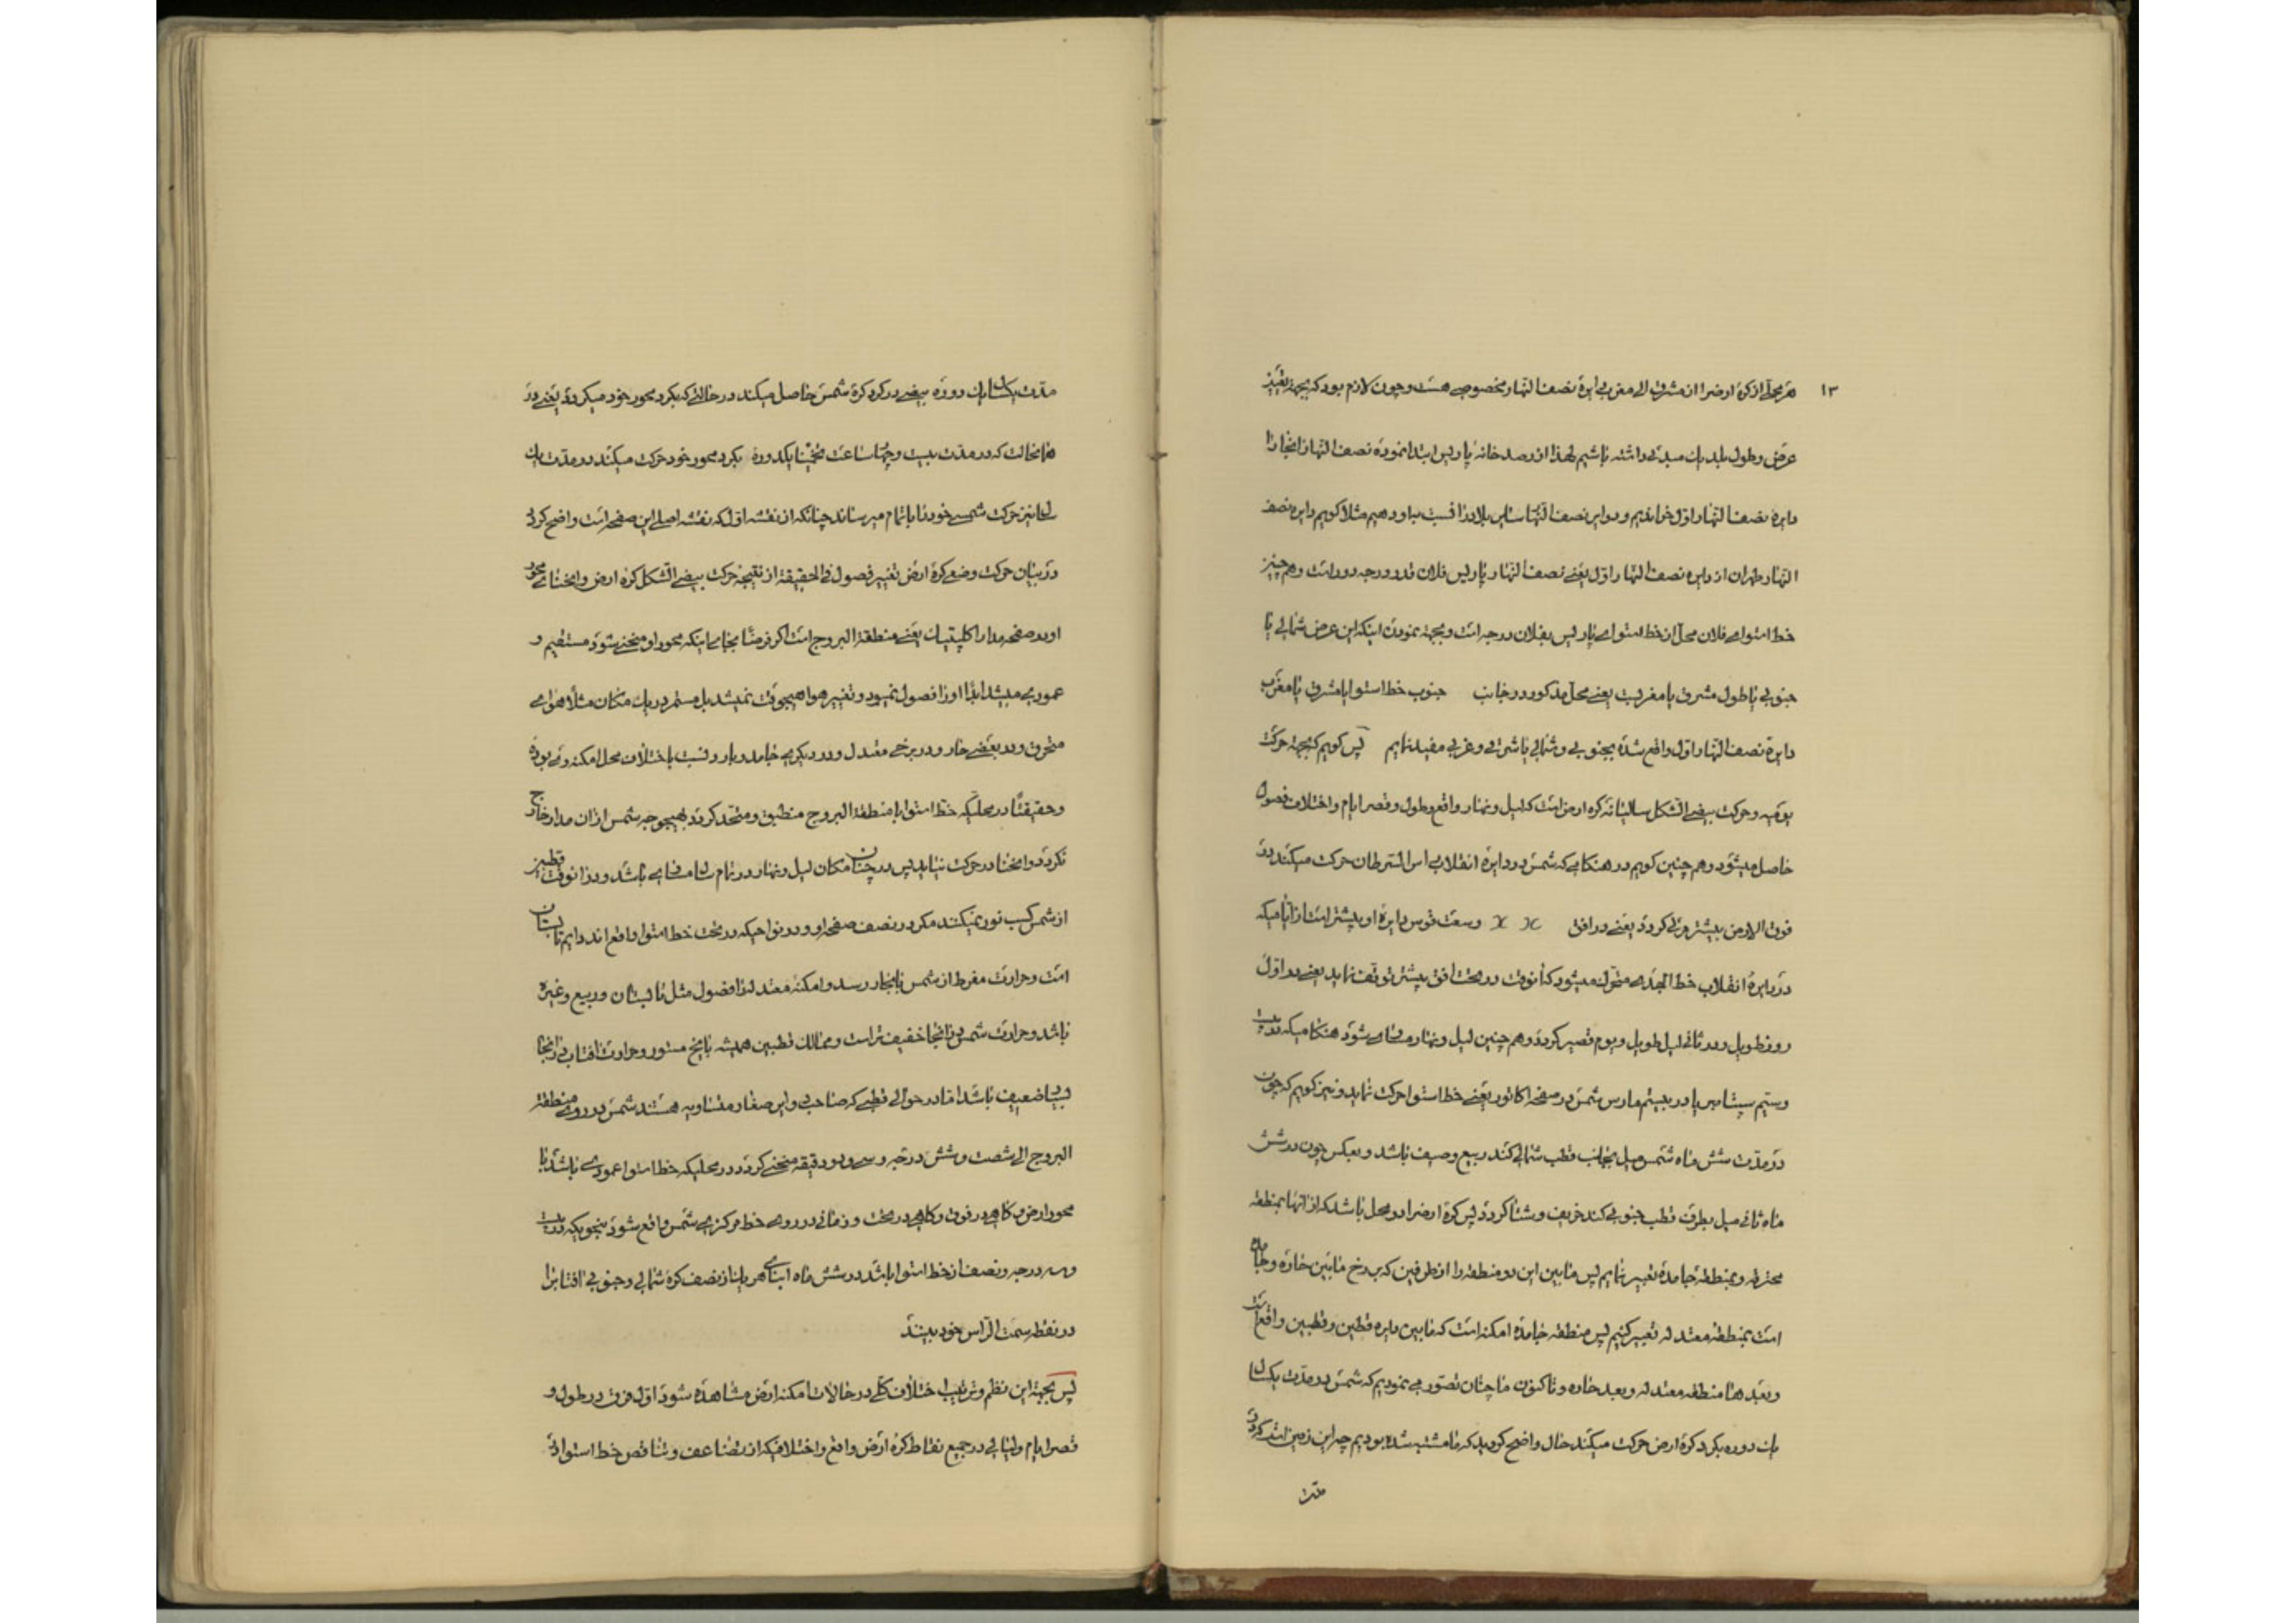 ۱۳
هر محلّی از کرهٔ ارض را از مشرق الی مغرب دایرهٔ نصف النهار مخصوصی هست و چون لازم بود که بجهة تعیین
عرض و طول بلد یک مبدئی داشته باشیم لهذا از رصد خانهٔ پاریس ابتدا نموده نصف النهار انجا را
دایرهٔ نصف النهار اوّل خوانیم و دوایر نصف النهار سایر بلاد را نسبت باو دهیم مثلا کوییم دایره نصف
النهار طهران از دایره نصف النهار اوّل یعنے نصف النهار پاریس فلان قدر درجه دور است و هم چنین
خط استوای فلان محل از خط استوای پاریس بفلان درجه است و بجهة نمودن اینکه این عرض شمالی یا
جنوبی یا طول مشرق یا مغربیت یعنے محل مذکور در جانب جنوب خط استوا یا مشرق یا مغرب
دایرهٔ نصف النهار اوّل واقع شده بجنوبی و شمالی یا شرقی و غربی مقید نماییم پس کوییم که بجهة حرکت
یومیه و حرکت بیضی الشکل سالیانهٔ کره ارض است که لیل و نهار واقع و طول و قصر ایام و اختلاف فصول
حاصل میشود و هم چنین کوییم در هنکامی که شمس در دایرهٔ انقلاب راس السرطان حرکت میکند در
فوق الارض بیشتر مرئی کردد یعنے در افق x x وسعت قوس دایرهٔ او بیشتر است از آیامیکه
در دایرهٔ انقلاب خط الجدی متحول میشود که آنوقت در تحت افق بیشتر توقف نماید یعنے در اوّل
روز طویل و در ثانی لیل طویل و یوم قصیر کردد و هم چنین لیل و نهار مساوی شود هنکامیکه در بیست
و سیّم سپتامبر یا در بیستم مارس شمس در صفحهٔ اکاتور یعنے خط استوا حرکت نماید و نیز کوییم که چون
در مدّت شش ماه شمس میل بجانب قطب شمالی کند ربیع و صیف باشد و بعکس چون در شش
ماه ثانی میل بطرف قطب جنوبی کند خریف و شتا کردد پس کرهٔ ارض را دو محل باشد که از انها بمنطقه
محترقه و بمنطقهٔ جامدهٔ تعبیر نماییم پس مابین این دو منطقه را از طرفین که برزخ مابین حارّه و جامده
است بمنطقهٔ معتدله تعبیر کنیم پس منطقه جامدهٔ امکنه است که مابین دایره قطبین و قطبین واقع است
و بعد ها منطقه معتدله و بعد حاره و تا کنون ما چنان تصوّر می نمودیم که شمس در مدّت یکسال
یک دوره بکرد کرهٔ ارض حرکت میکند حال واضح کردید که بما مشتبه شده بود چه این زمین است که در
مدّت
مدّت یکسال یک دوره بیضی در کرد کرهٔ شمس حاصل میکند در حالتی که بکرد محور خود میکردد یعنے در
همانحالت که در مدت بیست و چهار ساعت تخمینا یکدوره بکرد محور خود حرکت میکند در مدّت یک
سال نیز حرکت شمسی خود را باتمام میرساند چنانکه از نقشه اوّل که نقشه اصلی این صفحه است واضح کردد
در بیان حرکت وضعی کرهٔ ارض تغییر فصول فی الحقیقة از نتیجه حرکت بیضی الشکل کرهٔ ارض و انحنای محور
او در صفحه مدار اکلپتیک یعنے منطقة البروج است اکر فرضًا بجای اینکه محور او منحنی شود مستقیم و
عمودی میشد ابدًا او را فصول نمیبود و تغییر هوا هیچوقت نمیشد بل مستمر در یک مکان مثلا هوای
محرق و در بعضے حار و در برخی معتدل و در دیکری جامد و بارد و نسبت باختلاف محل امکنه وی بوده
و حقیقتًا در محلیکه خط استوا با منطقة البروج منطبق و متحد کردد بهیچوجه شمس از ان مدار خارج
نکردد و انحنا در حرکت نیابد پس در چنان مکان لیل و نهار در تمام سال مساوی باشد و در انوقت قطبین
از شمس کسب نور نمیکنند مکر در نصف صفحهٔ او و در نواحیکه در تحت خط استوا واقع اند دایم تابستان
است و حرارت مفرط از شمس بانجا رسد و امکنهٔ معتدله را فصول مثل تابستان و ربیع و غیره
باشد و حرارت شمس در انجا خفیفتر است و ممالک قطبین همیشه با یخ مستور و حرارت افتاب در انجا
بسیا ضعیف باشد اما در حوالی قطبی که صاحب دوایر صغار متساویه هستند شمس در روی منطقة
البروج الی شصت و شش درجه و سی و دو دقیقه منحنی کردد در محلیکه خط استوا عمودی باشد با
محور ارض و کاهی در فوق و کاهی در تحت و زمانی در روی خط مرکزی شمس واقع شود بنحویکه در بیست
و سه درجه و نصف از خط استوا باشد در شش ماه ابنای هر یک از نصف کره شمالی و جنوبی افتاب را
در نقطه سمت الراس خود بینند
پس بجهة این نظم و ترتیب اختلاف کلّی در حالات امکنه ارض مشاهده شود اوّل فرق در طول و
قصر ایام و لیالی در جمیع نقاط کرهٔ ارض واقع و اختلافیکه از تضاعف و تناقص خط استوا در